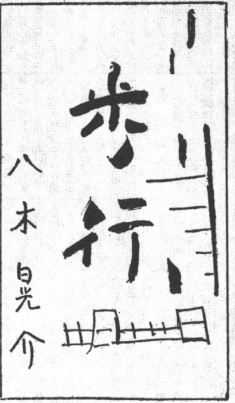 歩行
八木晃介